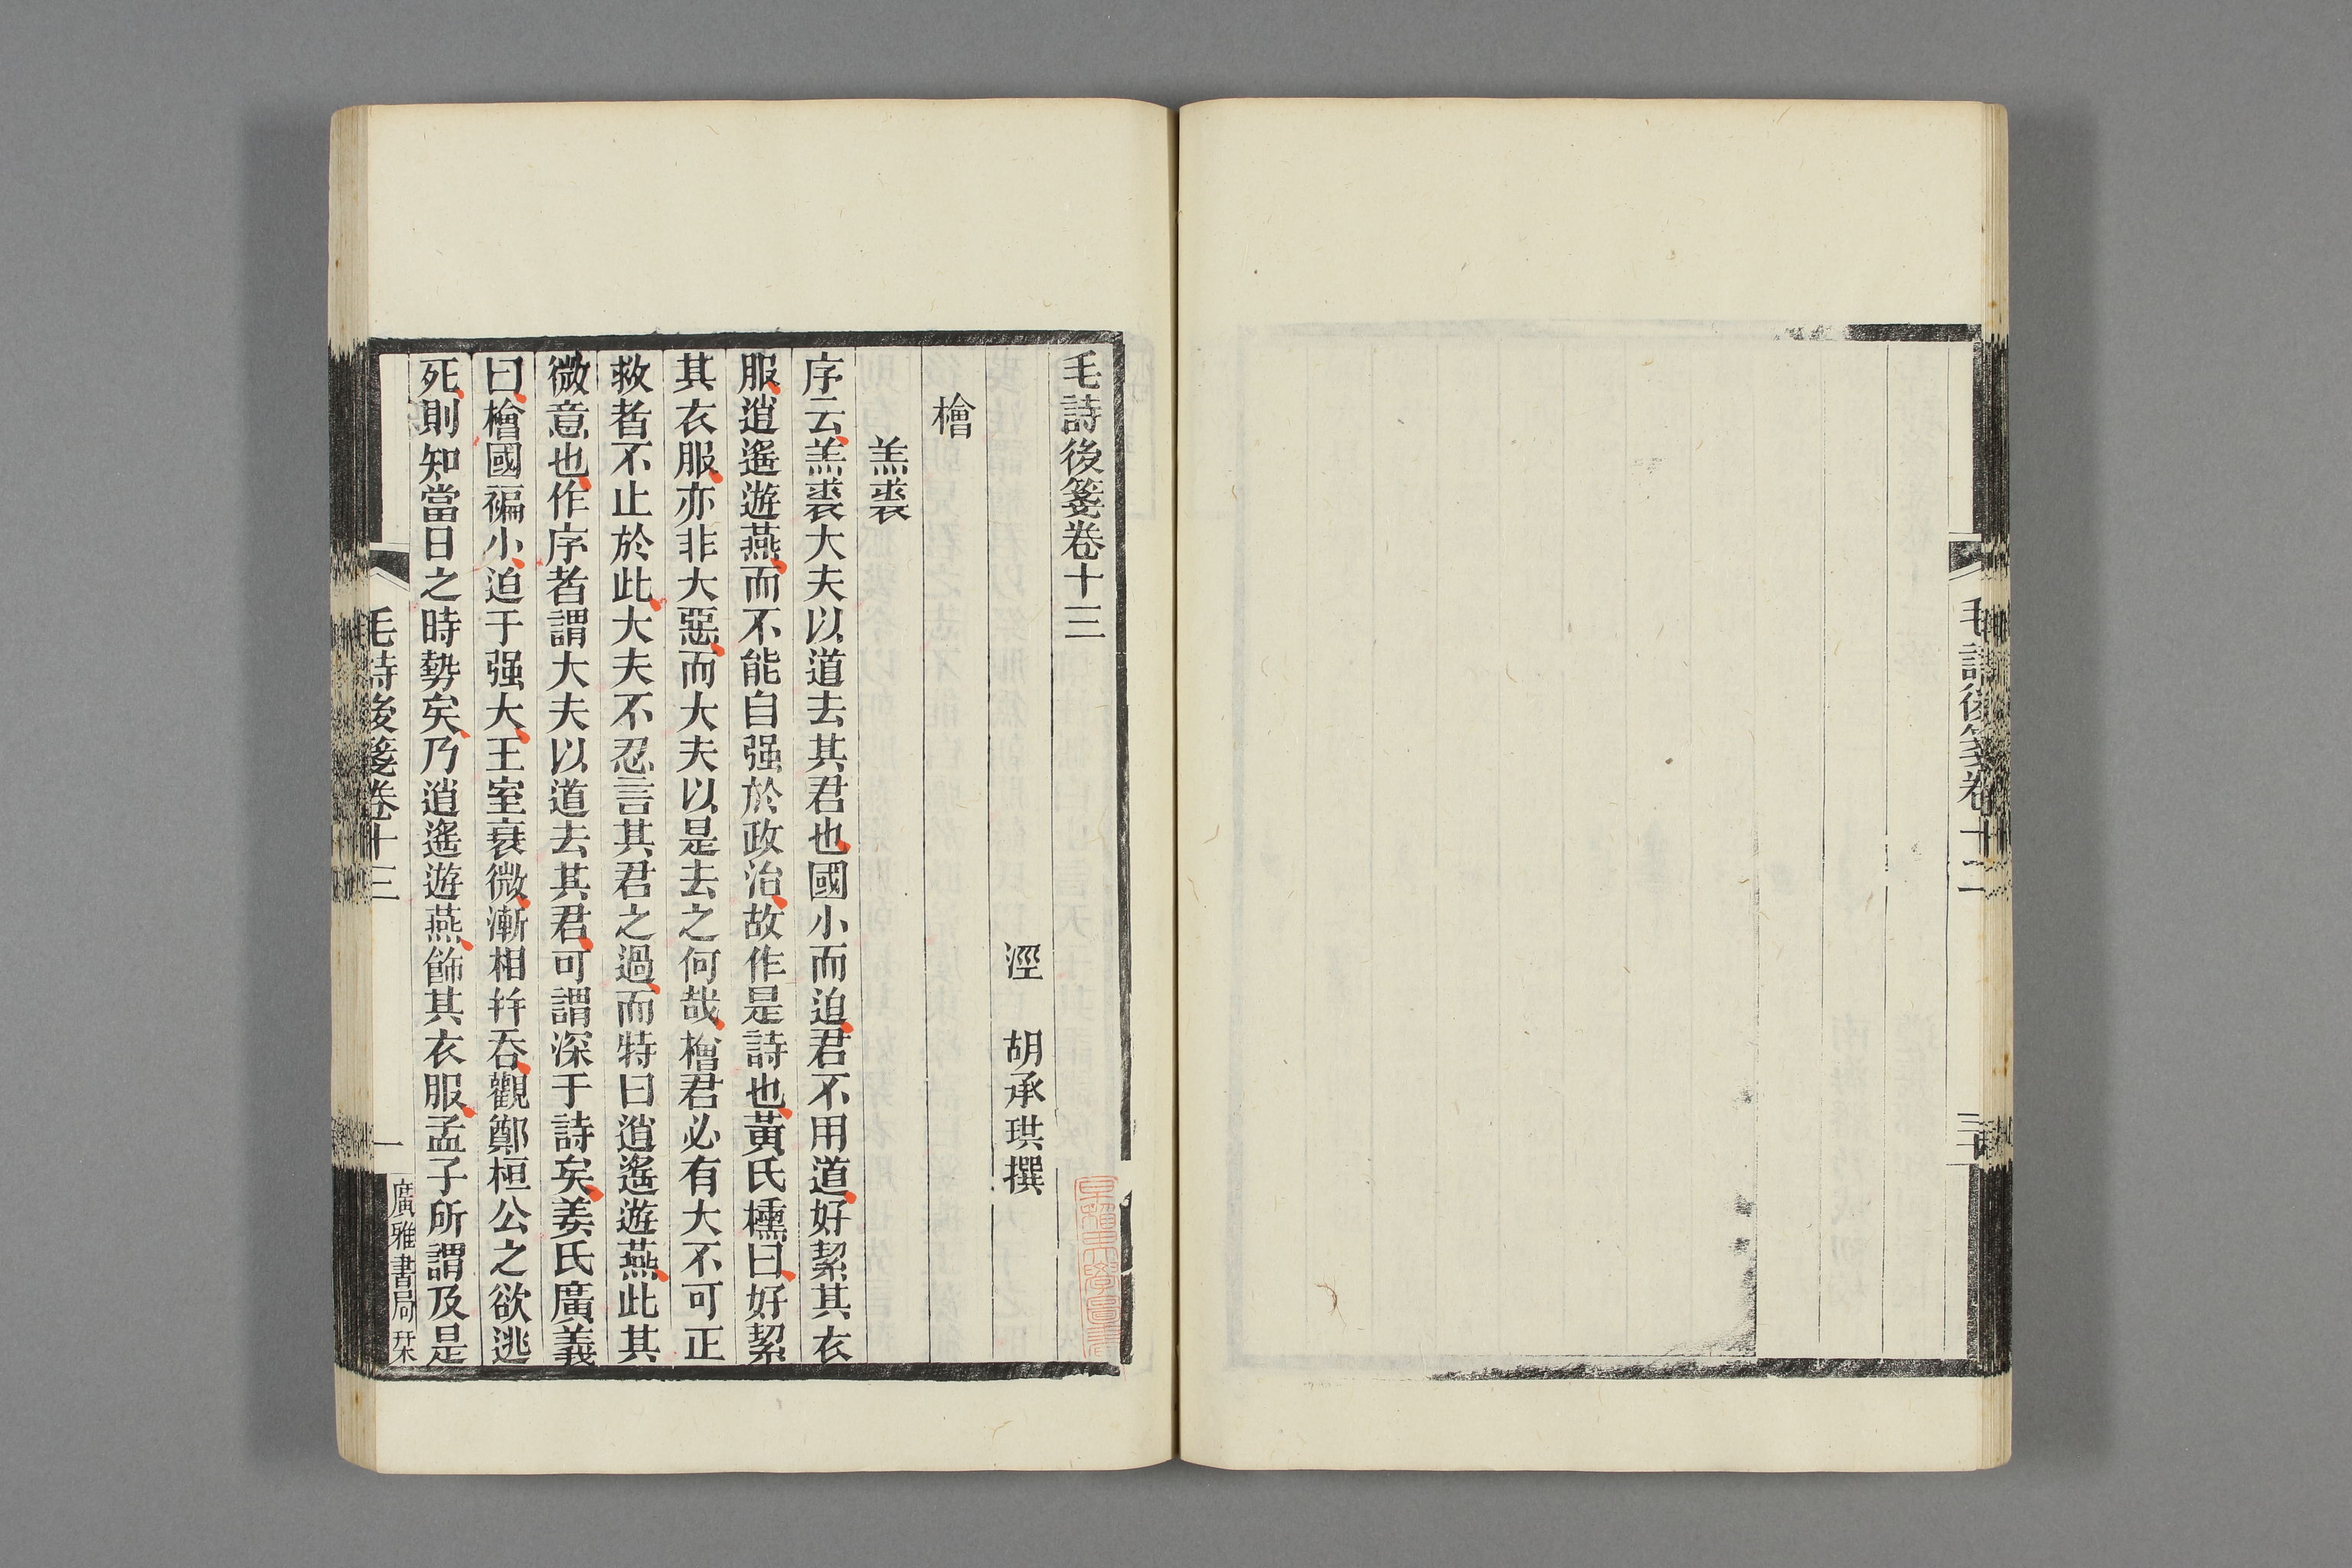 毛詩後箋卷十二
毛詩後箋卷十三
涇 胡承珙撰
檜
羔裘
序云羔裘大夫以道去其君也國小而迫君不用道好絜其衣
服逍遙遊燕而不能自强於政治故作是詩也黃氏櫄曰好絜
其衣服亦非大惡而大夫以是去之何哉檜君必有大不可正
救者不止於此大夫不忍言其君之過而特曰逍遙遊燕此其
微意也作序者謂大夫以道去其君可謂深于詩矣姜氏廣義
曰檜國褊小迫于强大王室衰微漸相幷吞觀鄭桓公之欲逃
死則知當日之時勢矣乃逍遙遊燕飾其衣服孟子所謂及是
毛詩後箋卷十三
一
廣雅書局栞